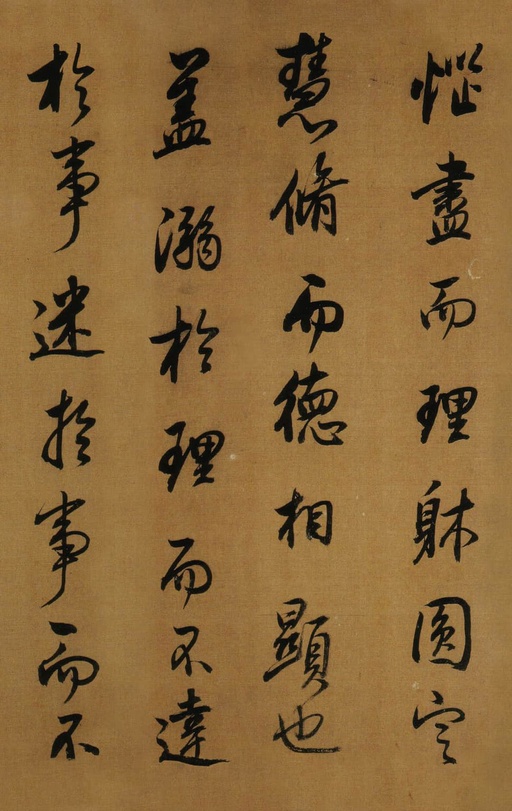 惱盡而理躰圓定
慧脩而德相顯也
盖溺於理而不達
於事迷於事而不